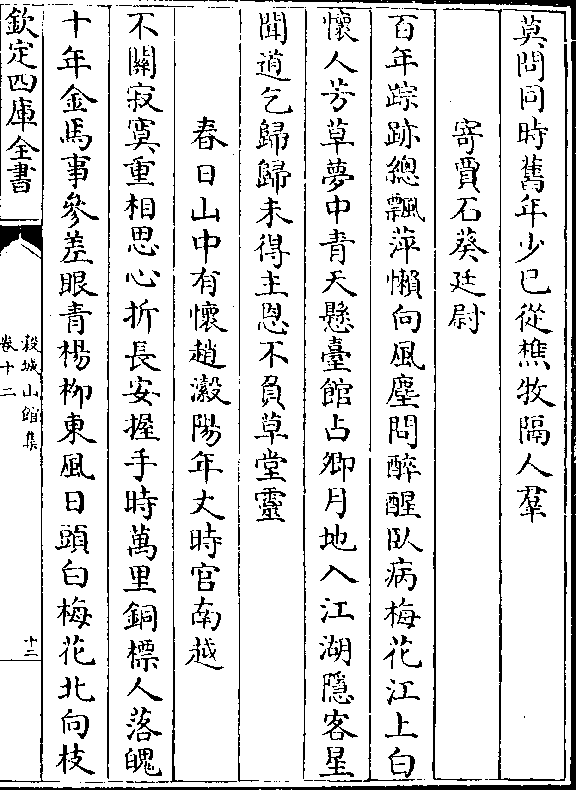 莫問同時舊年少已從樵牧隔人羣
寄賈石葵廷尉
百年踪跡總飄萍懶向風塵問醉醒臥病梅花江上白
懷人芳草夢中青天懸臺館占卿月地入江湖隱客星
聞道乞歸歸未得主恩不負草堂靈
春日山中有懷趙瀔陽年丈時官南越
不關寂寞重相思心折長安握手時萬里銅標人落魄
十年金馬事參差眼青楊柳東風日頭白梅花北向枝
欽定四庫全書
榖城山館集
卷十二
十二